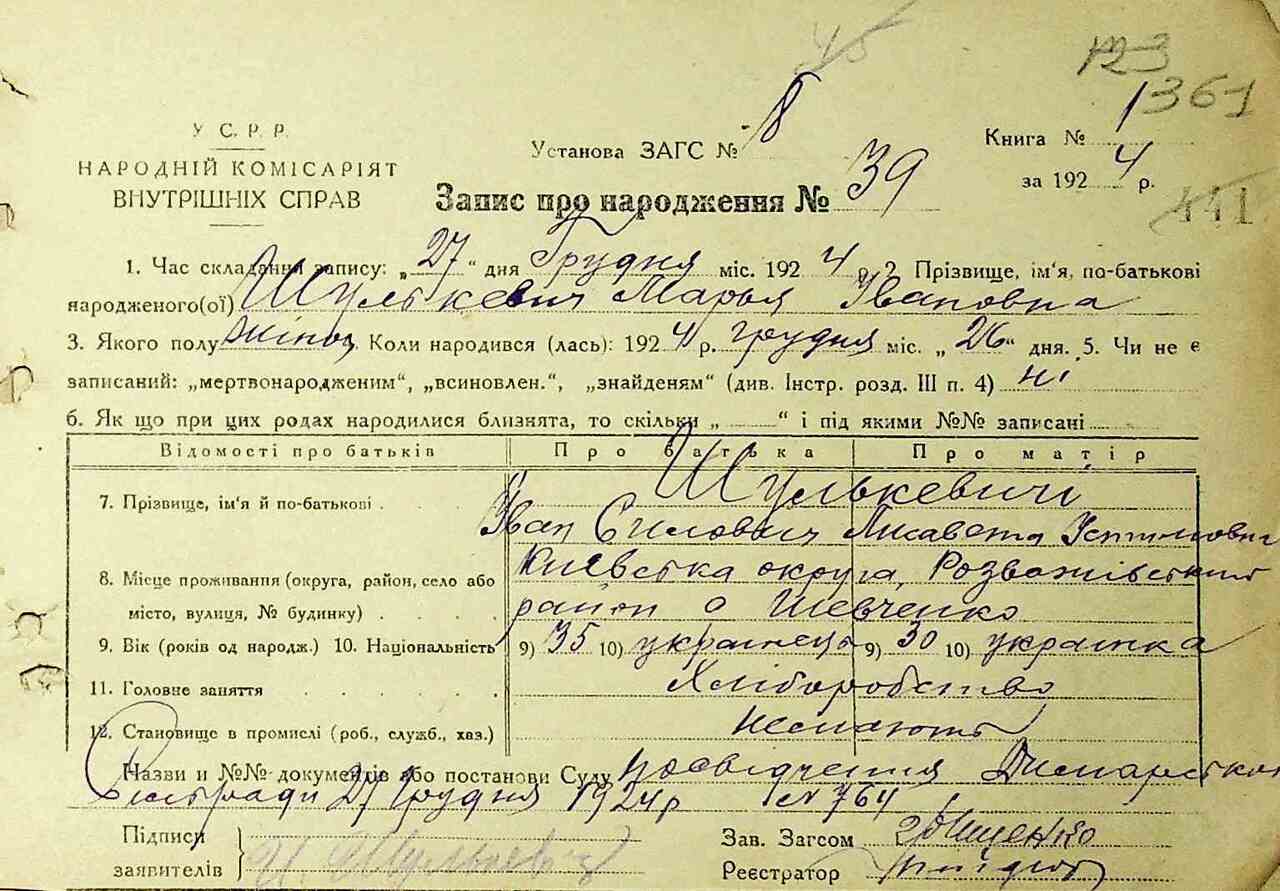 45
123
361
У. С. Р. Р.
НАРОДНІЙ КОМІСАРІЯТ
ВНУТРІШНІХ СПРАВ
Установа ЗАГС № 8
Книга № 1
за 1924 р.
441
Запис про народження № 39
1. Час складання запису: „27“ дня Грудня міс. 1924 р. 2 Прізвище, ім'я, по-батькові
народженого(ої) Шулькевич Марья Івановна
3. Якого полу жіноч. Коли народився (лась): 1924 р. грудня міс. „26“ дня. 5. Чи не є
записаний: „мертвонародженим“, „всиновлен.“, „знайденям“ (див. Інстр. розд. III п. 4) ні
6. Як що при цих родах народилися близнята, то скільки „ “ і під якими №№ записані
Відомості про батьків Про батька Про матір
7. Прізвище, ім'я й по-батькові Шулькевичі
Іван Силович Лисавета Устиновна
8. Місце проживання (округа, район, село або Київська округа, Розважівський
місто, вулиця, № будинку) район с Шевченко
9. Вік (років од народж.) 10. Національність 9) 35 10) українець 9) 30 10) українка
11. Головне заняття Хліборобство
12. Становище в промислі (роб., служб., хаз.) немають
Назви и №№ документів або постанови Суду посвідчення
Сільради 27 Грудня 1924 р № 764
Підписи
заявителів И Шулькевич
Зав. Загсом
Реєстратор